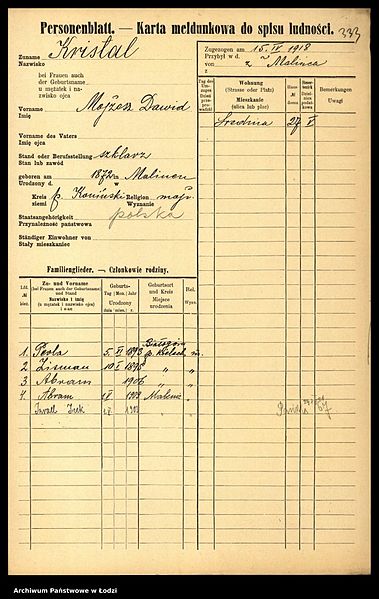 Personenblatt. — Karta meldunkowa do spisu ludności. 333
Zuname
Nazwisko
Kristal
bei Frauen auch der Geburtsname
u mężatek i nazwisko ojca
Vorname
Imię
Mojżesz Dawid
Vorname des Vaters
Imię ojca
Stand oder Berufsstellung
Stan lub zawód
szklarz
geboren am
Urodzony d.
1872 w
Kreis
ziemi
p. Koniński
Religion
Wyznanie
mojż.
Staatsangehörigkeit
Przynależność państwowa
polska
Ständiger Einwohner von
Stały mieszkaniec
Zugezogen am
Przybył w d.
15. IV 1918
von
z
Tag des Umzuges
Dzień przeprowadzki
Wohnung
(Strasse oder Platz)
Mieszkanie
(ulica lub plac)
Haus №
domu
Bemerkungen
Uwagi
Średnia 27 V
Familienglieder. — Członkowie rodziny.
Lfd. №
bież.
Zu- und Vorname
(bei Frauen auch der Geburtsname)
und Stand
Nazwisko i imię
(u mężatek i nazwisko ojca)
i stan
Geburts-
Tag | Mon. | Jahr
Urodzony
dnia | mies. | r.
Geburtsort
und Kreis
Miejsce
urodzenia
Rel.
Wyzn.
1. Perla 5. VI 1873 p. Kielech m.
2. 19 I 1895 " "
3. Abram 1906 " "
4. Abram 1908
Archiwum Państwowe w Łodzi